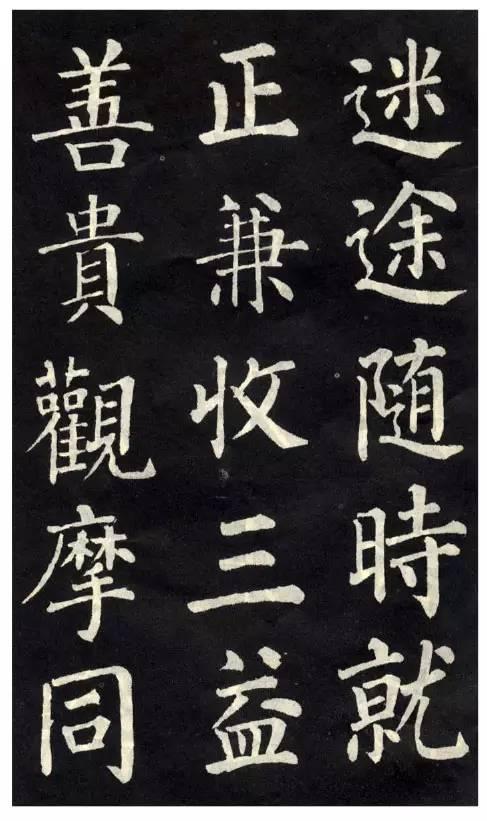 迷途随時就
正兼收三益
善貴觀摩同